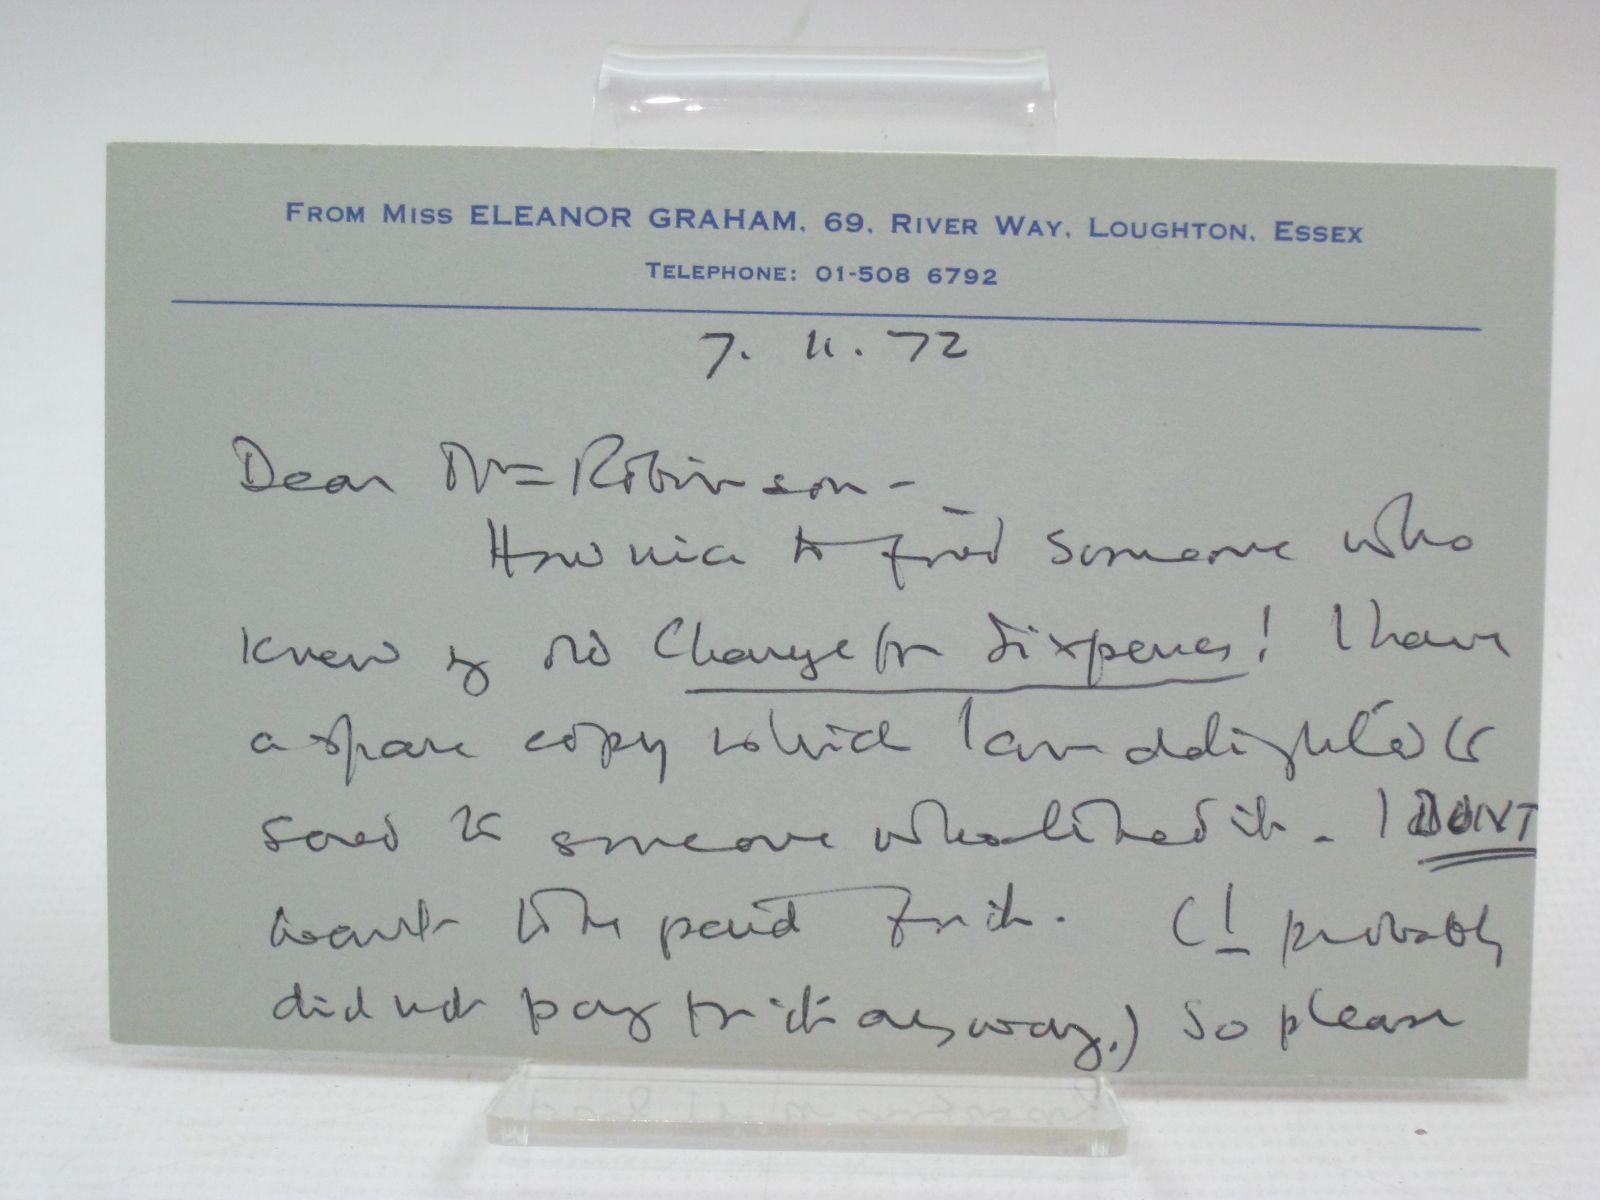 FROM MISS ELEANOR GRAHAM, 69, RIVER WAY, LOUGHTON, ESSEX
TELEPHONE: 01-508 6792
7. 11. 72
Dear Mr= Robinson -
How nice to find someone who
knew of old Change for Sixpence! I have
a spare copy which I am delighted to
send to someone who liked it. I DONT
want to be paid for it. (I probably
did not pay for it anyway.) So please